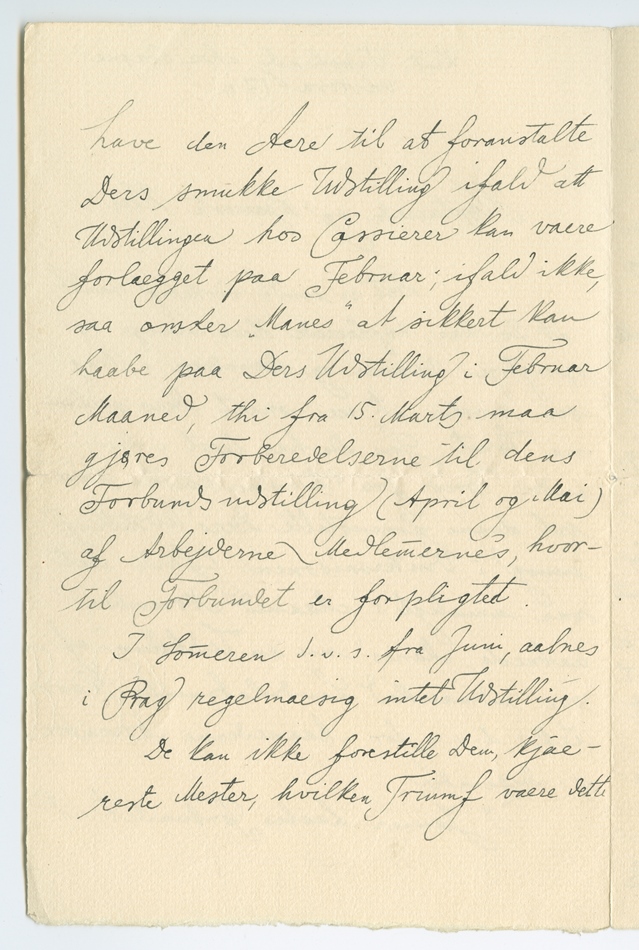 have den Aere til at foranstalte
Ders smukke Udstilling ifald att
Udstillingen hos Cassierer kan vaere
forlaegget paa Februar; ifald ikke,
saa onsker "Manes" at sikkert kan
haabe paa Ders Udstilling i Februar
Maaned, thi fra 15. Marts maa
gjøres Forberedelserne til dens
Forbundsudstilling (April og Mai)
af Arbejderne Medlem̄ernes, hvor-
til Forbundet er forpligtet.
I Som̄eren d.v.s. fra Juni, aabnes
i Prag regelmaesig intet Udstilling.
De kan ikke forestille Dem, kjae-
reste Mester, hvilken Triumf vaere dette